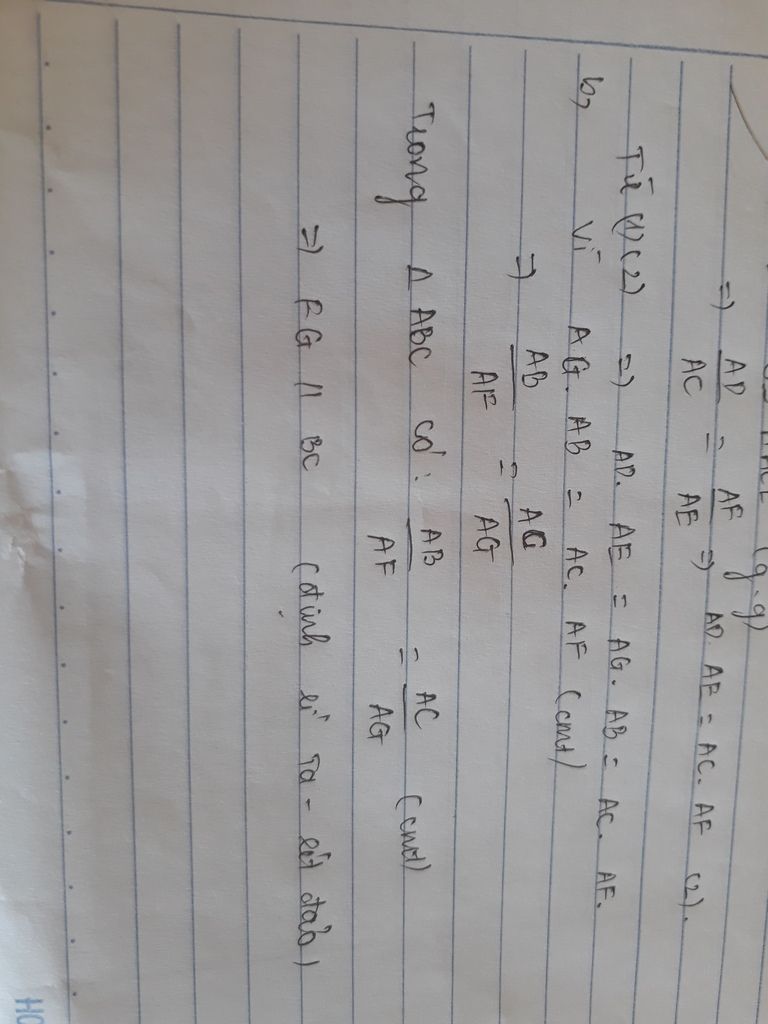 ACE (g.g)
=) AD/AC = AF/AE =) AD. AE = AC. AF (2).
Từ (1) (2) =) AD. AE = AG. AB = AC. AF.
b, Vì AG. AB = AC. AF (cmt)
=) AB/AF = AC/AG
Trong Δ ABC có: AB/AF = AC/AG (cmt)
=) FG // BC (định lí Ta - lét đảo)
HO